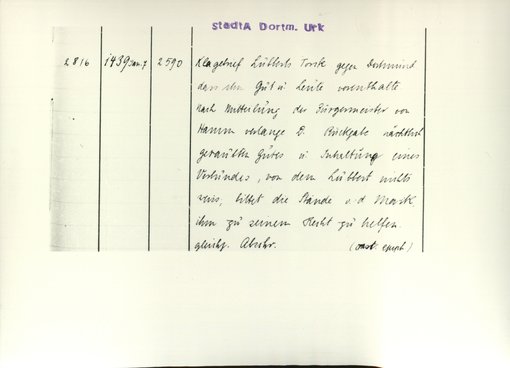 StadtA Dortm. Urk
2816 1439 Jan. 7 2590 Klagebrief Lübberts Torck gegen Dortmund
dass ihm Gut u. Leute vorenthalte
nach Mitteilung der Bürgermeister von
Hamm verlange D. Rückgabe nächtlich
geraubten Gutes u Inhaltung eines
Verbundes, von dem Lübbert nichts
weis, bittet die Stände v. d Mark
ihm zu seinem Recht zu helfen.
gleichz. Abschr.